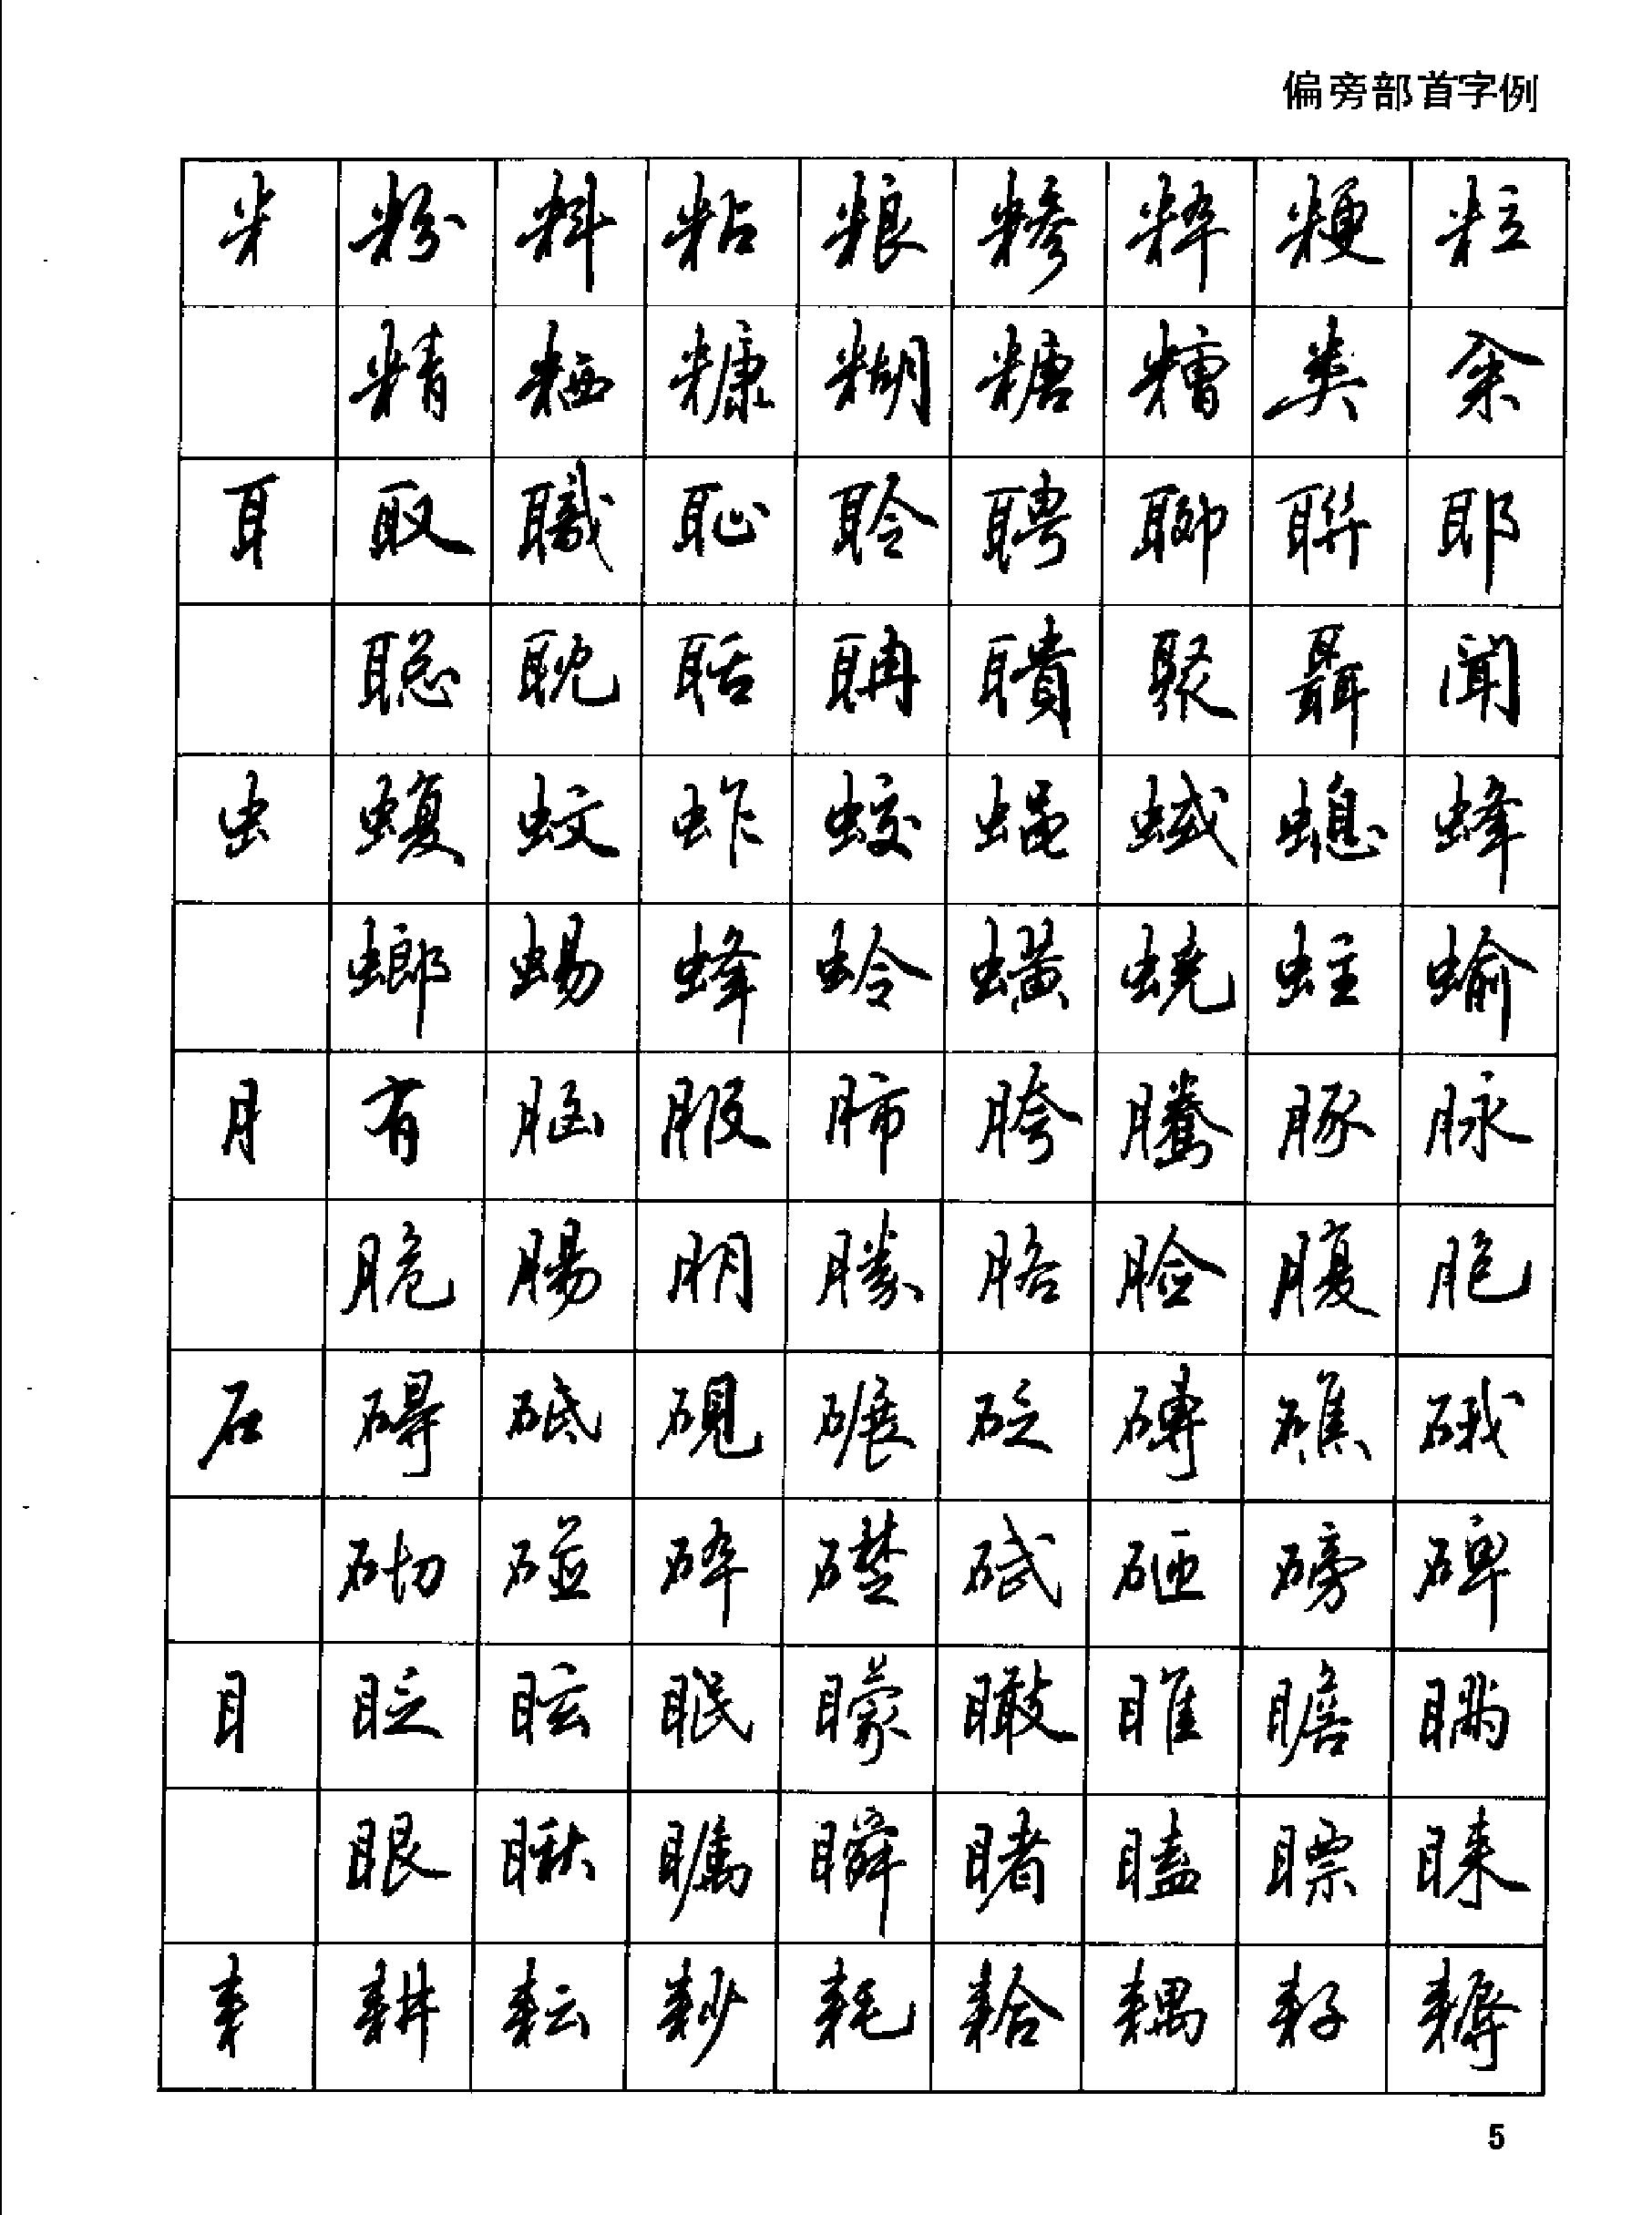 偏旁部首字例
米 粉 料 粘 粮 糁 粹 粳 粒
精 粞 糠 糊 糖 糟 类 籴
耳 取 職 恥 聆 聘 聊 聯 耶
聪 耽 聒 聃 聩 聚 聶 闻
虫 蝮 蚊 蚱 蛟 蝇 蜮 螅 蜂
螂 蜴 蜂 蛉 蟥 蛲 蛀 蝓
月 有 脑 服 肺 胯 腾 豚 脉
脆 腸 朋 滕 胳 脸 腹 胞
石 碍 砥 硯 碾 砭 磚 礁 硪
砌 碰 碎 礎 碔 砸 磅 碑
目 眨 眩 眠 矇 瞰 睢 瞻 瞒
眼 瞅 瞩 瞬 睹 瞌 瞟 睐
耒 耕 耘 耖 耗 耠 耦 耔 耨
5